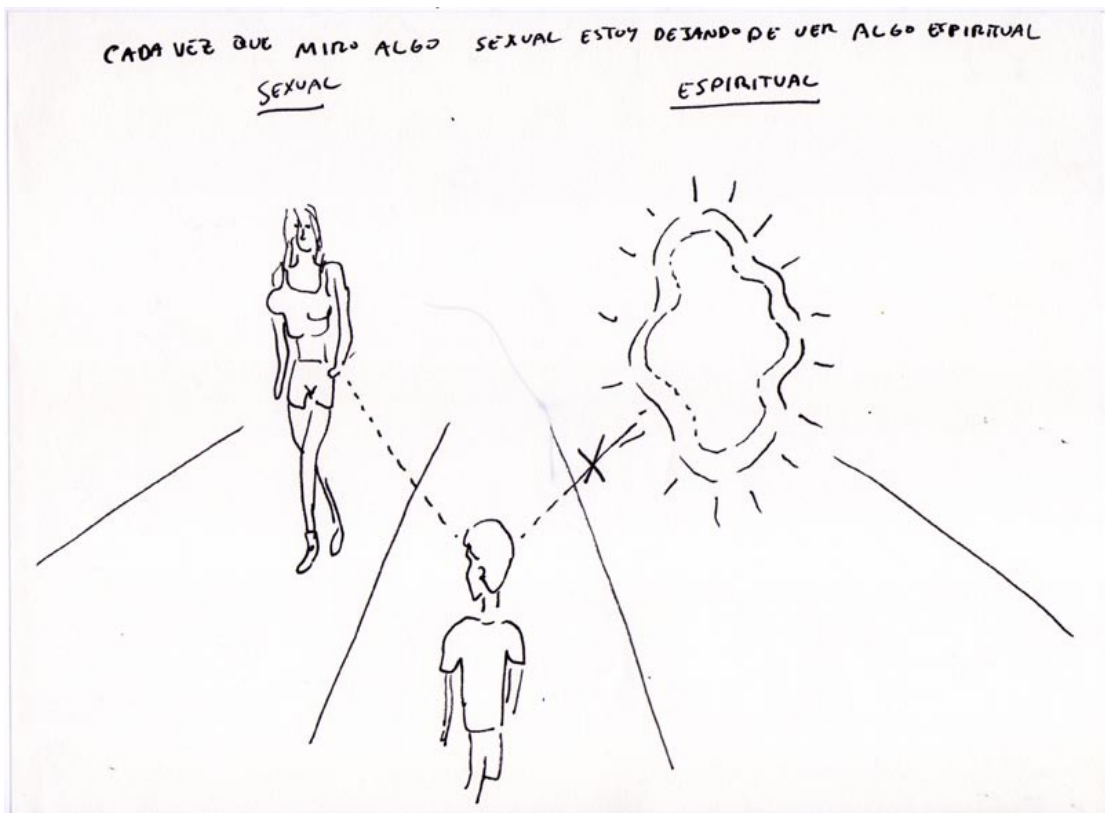 CADA VEZ QUE MIRO ALGO SEXUAL ESTOY DEJANDO DE VER ALGO ESPIRITUAL
SEXUAL
ESPIRITUAL